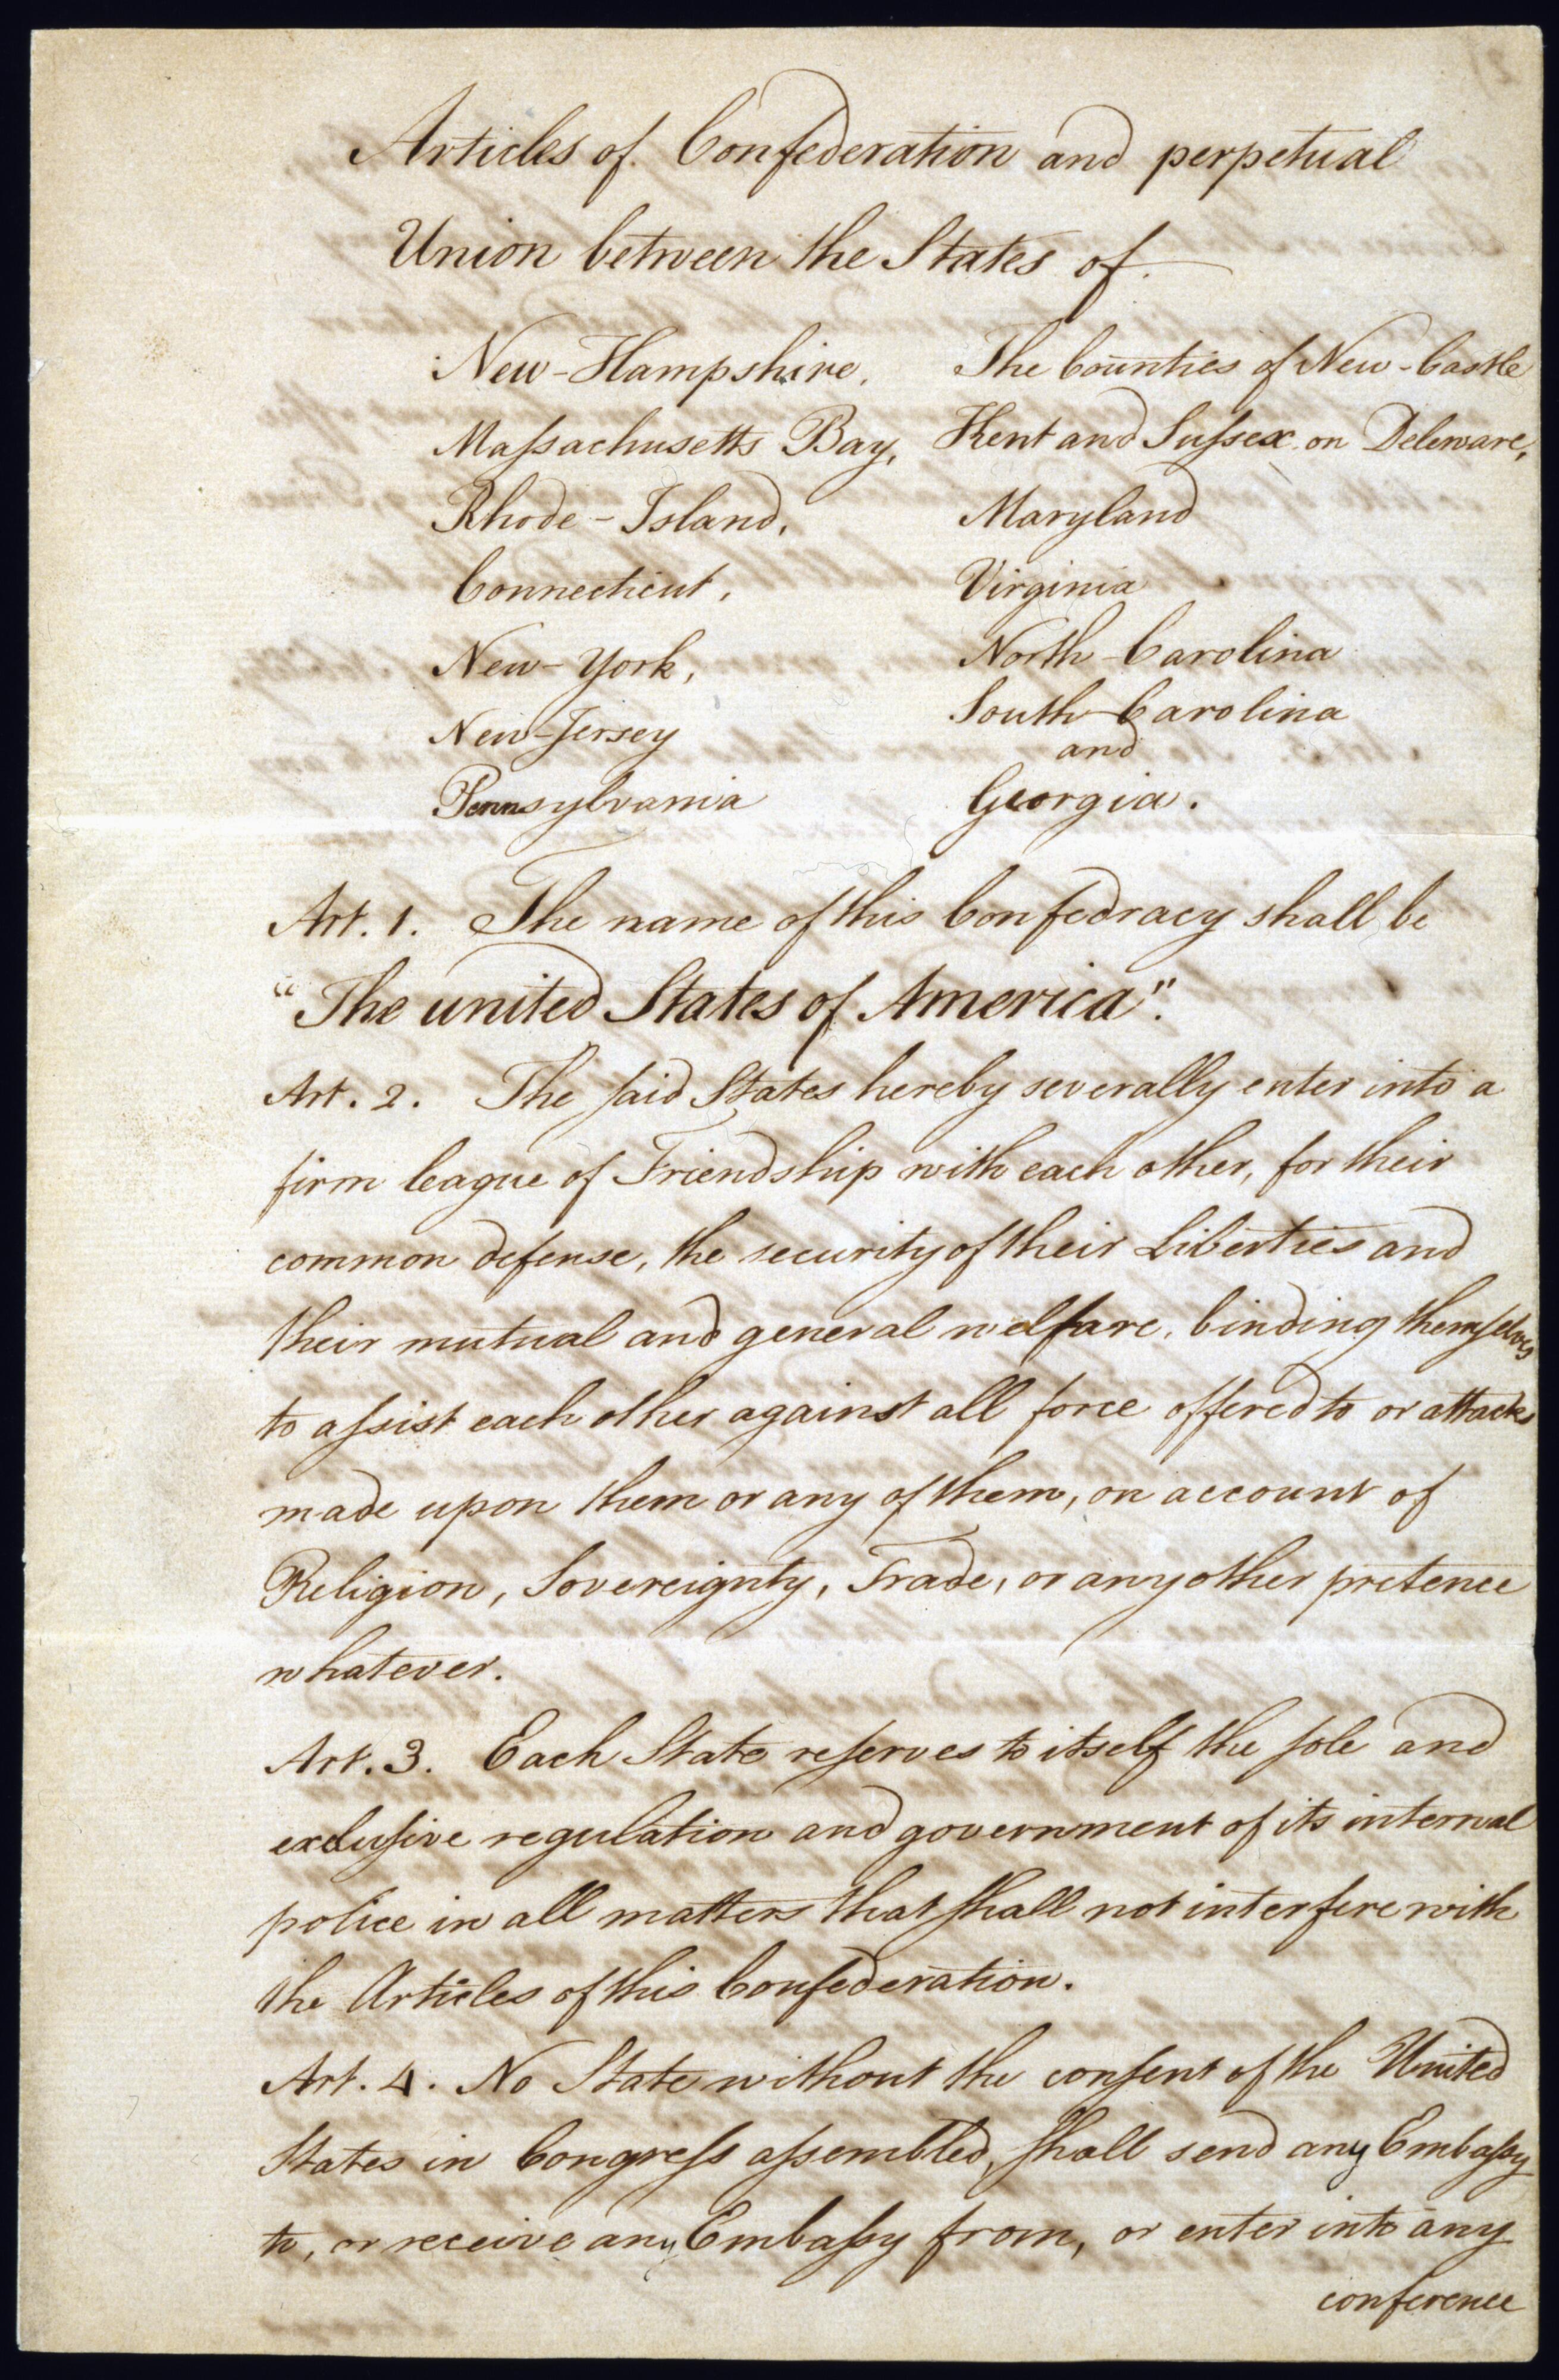 Articles of Confederation and perpetual
Union between the States of
New-Hampshire,
Maſsachusetts Bay,
Rhode-Island,
Connecticut,
New-York,
New-Jersey
Pennsylvania
The Counties of New-Castle
Kent and Suſsex on Deleware,
Maryland
Virginia
North-Carolina
South-Carolina
and
Georgia.
Art. 1. The name of this Confedracy shall be
"The united States of America".
Art. 2. The ſaid States hereby severally enter into a
firm league of Friendship with each other, for their
common defense, the security of their Liberties and
their mutual and general welfare, binding themſelves
to aſsist each other against all force offered to or attacks
made upon them or any of them, on account of
Religion, Sovereignty, Trade, or any other pretence
whatever.
Art. 3. Each State reſerves to itself the ſole and
excluſive regulation and government of its internal
police in all matters that ſhall not interfere with
the Articles of this Confederation.
Art. 4. No State without the conſent of the United
States in Congreſs aſsembled, ſhall send any Embaſsy
to, or receive any Embaſsy from, or enter into any
conference